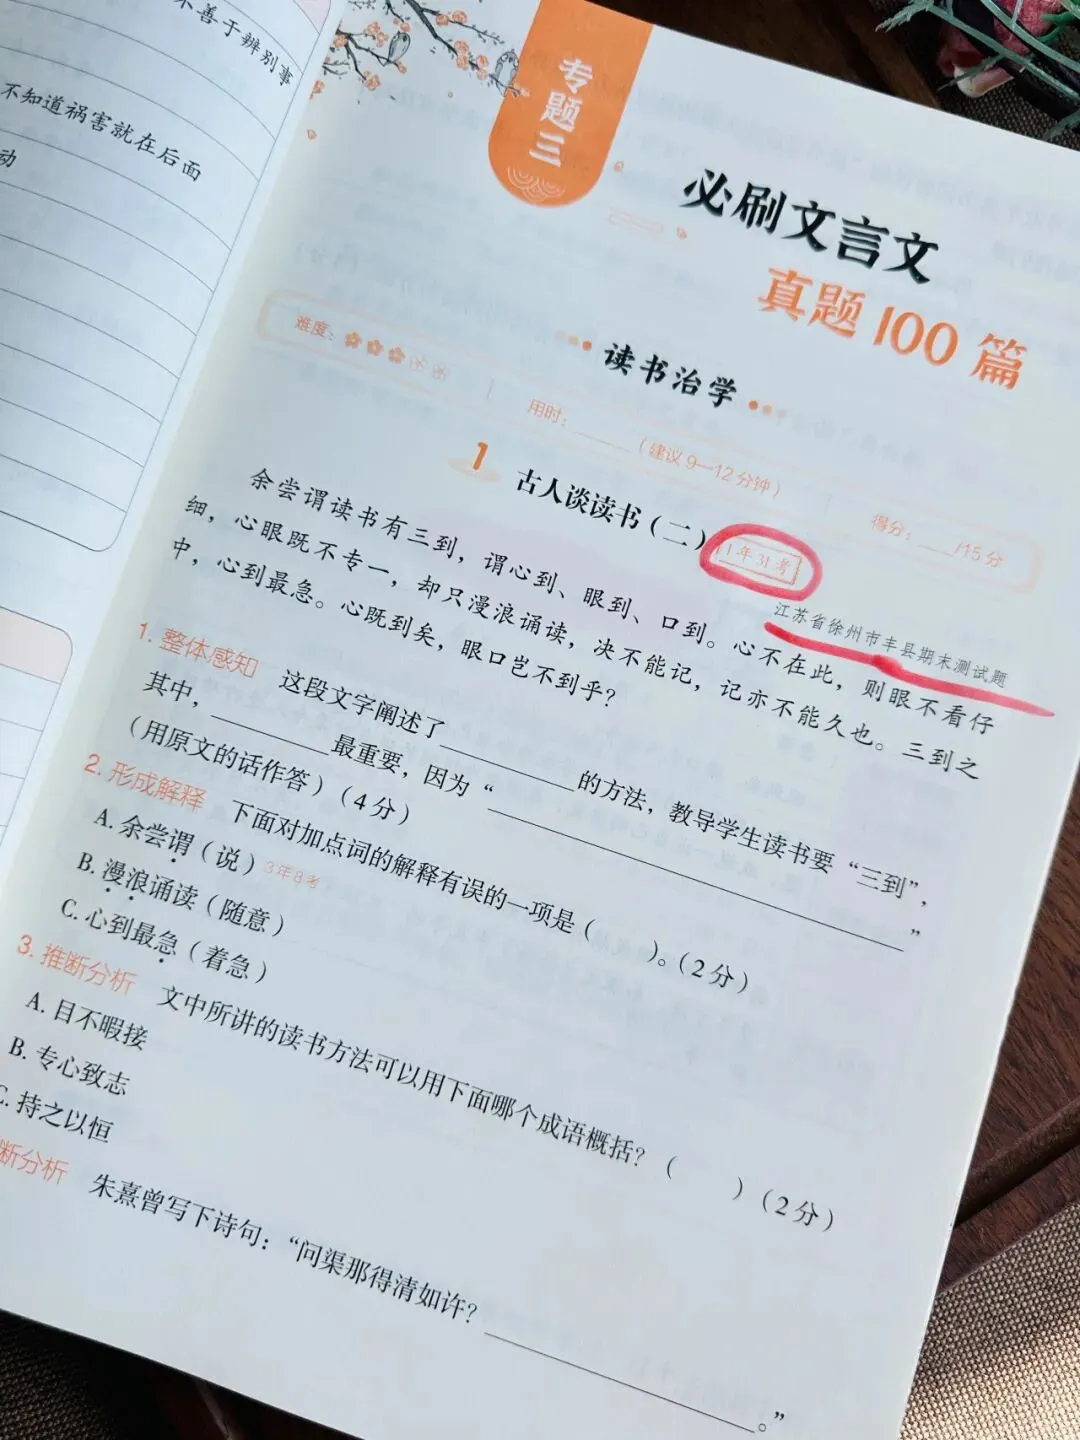 不善于辨别事
不知道祸害就在后面
动
专题三
必刷文言文
真题100篇
读书治学
难度:
用时:______(建议9—12分钟)
得分:____/15分
1 古人谈读书(二) 1年31考
江苏省徐州市丰县期末测试题
余尝谓读书有三到,谓心到、眼到、口到。心不在此,则眼不看仔
细,心眼既不专一,却只漫浪诵读,决不能记,记亦不能久也。三到之
中,心到最急。心既到矣,眼口岂不到乎?
1. 整体感知 这段文字阐述了__________的方法,教导学生读书要“三到”,
其中,__________最重要,因为“______________________________”
(用原文的话作答)(4分)
2. 形成解释 下面对加点词的解释有误的一项是( )。(2分)
A. 余尝谓(说) 3年8考
B. 漫浪诵读(随意)
C. 心到最急(着急)
3. 推断分析 文中所讲的读书方法可以用下面哪个成语概括?( )(2分)
A. 目不暇接
B. 专心致志
C. 持之以恒
断分析 朱熹曾写下诗句:“问渠那得清如许?____________________。”